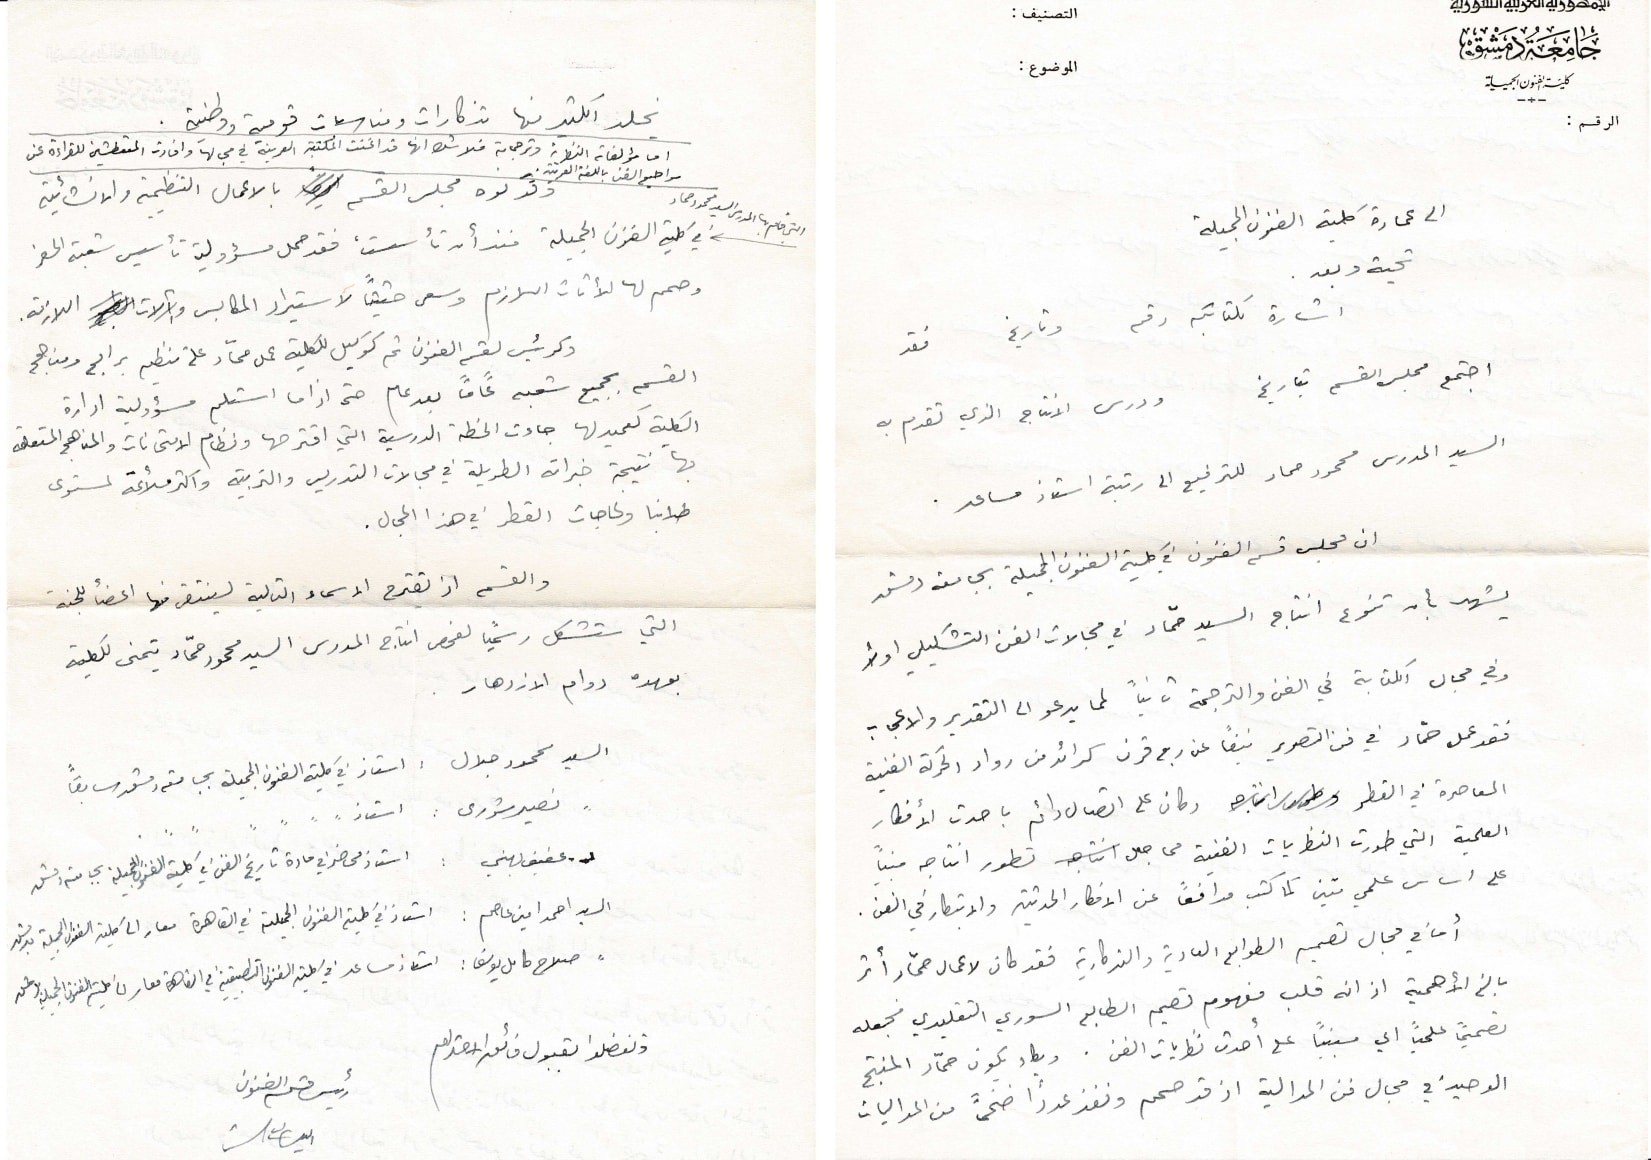 الجمهورية العربية السورية
جامعة دمشق
كلية الفنون الجميلة
الرقم :
التصنيف :
الموضوع :
الى عمادة كلية الفنون الجميلة
تحية وبعد .
اشارة لكتابكم رقم وتاريخ فقد
اجتمع مجلس القسم بتاريخ ودرس الانتاج الذي تقدم به
السيد المدرس محمود حماد للترفيع الى رتبة استاذ مساعد .
ان مجلس قسم الفنون في كلية الفنون الجميلة بجامعة دمشق
يشهد بأن تنوع انتاج السيد حمّاد في مجالات الفن التشكيلي اولاً
وفي مجال الكتابة في الفن والترجمة ثانياً لما يدعو الى التقدير والاعجاب
فقد عمل حمّاد في فن التصوير نيفاً عن ربع قرن كرائد من رواد الحركة الفنية
المعاصرة في القطر وكان على اتصال دائم باحدث الأفكار
العلمية التي طورت النظريات الفنية مما جعل انتاجه تطور انتاجه مبنياً
على اساس علمي متين كما كتب مدافعاً عن الافكار الحديثة والابتكار في الفن .
أما في مجال تصميم الطوابع العادية والتذكارية فقد كان لاعمال حمّاد أثر
بالغ الأهمية اذ انه قلب مفهوم تصميم الطابع السوري التقليدي فجعله
تصميماً علمياً اي مبنياً على أحدث نظريات الفن . ويكاد يكون حمّاد المنتج
الوحيد في مجال فن المدالية اذ قد صمم ونفذ عدداً ضخماً من المداليات
يخلد الكثير منها تذكارات ومناسبات قومية ووطنية .
اما مؤلفاته النظرية وترجماته فلا شك انها قد اغنت المكتبة العربية في مجالها وافادت المتعطشين للقراءة عن
مواضيع الفن باللغة العربية .
وقد نوه مجلس القسم بالاعمال التنظيمية والانشائية
التي قام بها المدرس السيد محمود حماد
في كلية الفنون الجميلة منذ أن تأسست، فقد حمل مسؤولية تأسيس شعبة الحفر
وصمم لها الأثاث اللازم وسعى حثيثاً لاستيراد المكابس والآلات اللازمة .
وكرئيس لقسم الفنون ثم كوكيل للكلية عمل حمّاد على تنظيم برامج ومناهج
القسم بجميع شعبه عاماً بعد عام حتى اذا ما استلم مسؤولية ادارة
الكلية كعميد لها جاءت الخطة الدرسية التي اقترحها ونظام الامتحانات والمناهج المتعلقة
بها نتيجة خبراته الطويلة في مجالات التدريس والتربية واكثر ملائمة لمستوى
طلابنا ولحاجات القطر في هذا المجال .
والقسم اذ يقترح الاسماء التالية لينتقى منها اعضاء للجنة
التي ستشكل رسمياً لفحص انتاج المدرس السيد محمود حمّاد يتمنى للكلية
بعهده دوام الازدهار .
السيد محمود جلال : استاذ في كلية الفنون الجميلة بجامعة دمشق سابقاً
" نصير شورى : استاذ " " " " " " .
د. عفيف بهنسي : استاذ محاضر في مادة تاريخ الفن في كلية الفنون الجميلة بجامعة دمشق
السيد احمد امين عاصم : استاذ في كلية الفنون الجميلة في القاهرة معار الى كلية الفنون الجميلة بدمشق
" صلاح كامل يوسف : استاذ مساعد في كلية الفنون التطبيقية في القاهرة معار الى كلية الفنون الجميلة بدمشق
وتفضلوا بقبول فائق الاحترام
رئيس قسم الفنون